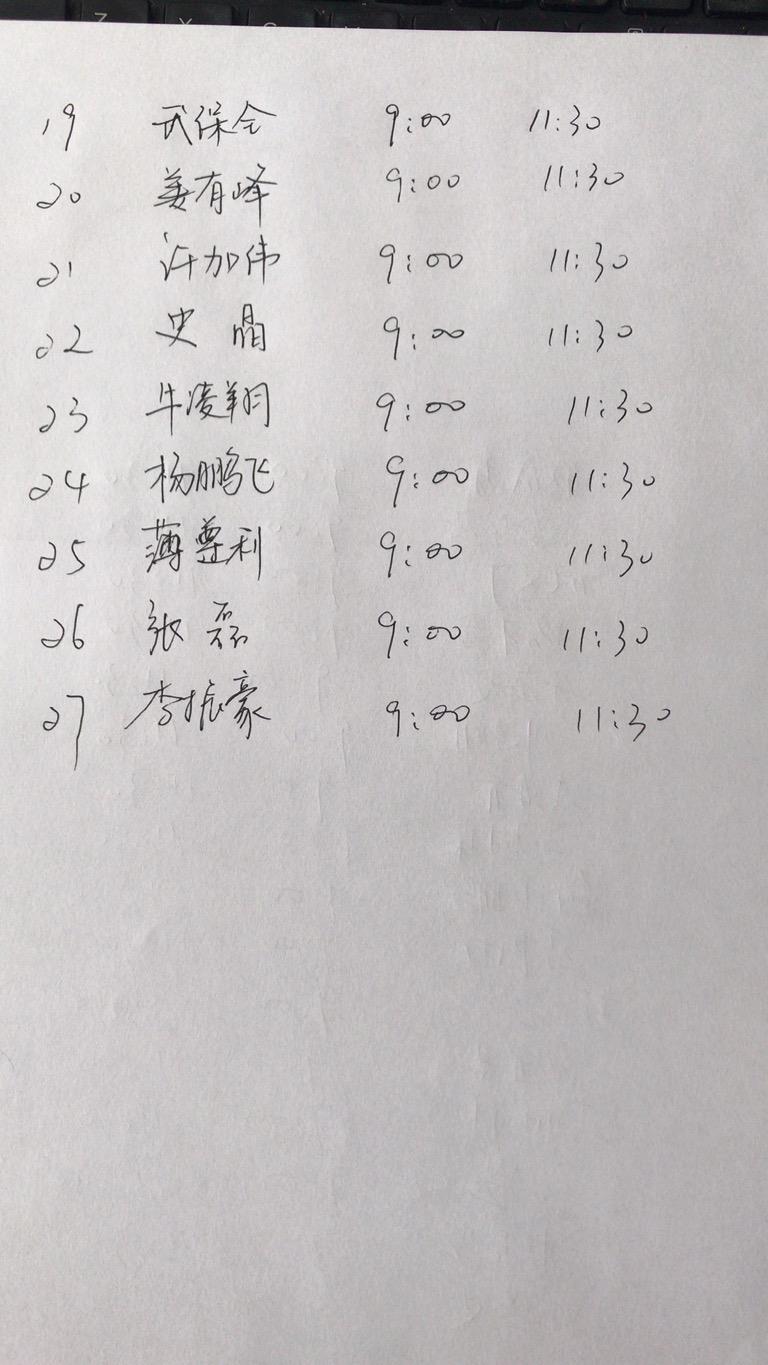 19 武保全 9:00 11:30
20 姜有峰 9:00 11:30
21 许加伟 9:00 11:30
22 史晶 9:00 11:30
23 牛凌翔 9:00 11:30
24 杨鹏飞 9:00 11:30
25 薄尊利 9:00 11:30
26 张磊 9:00 11:30
27 李振豪 9:00 11:30